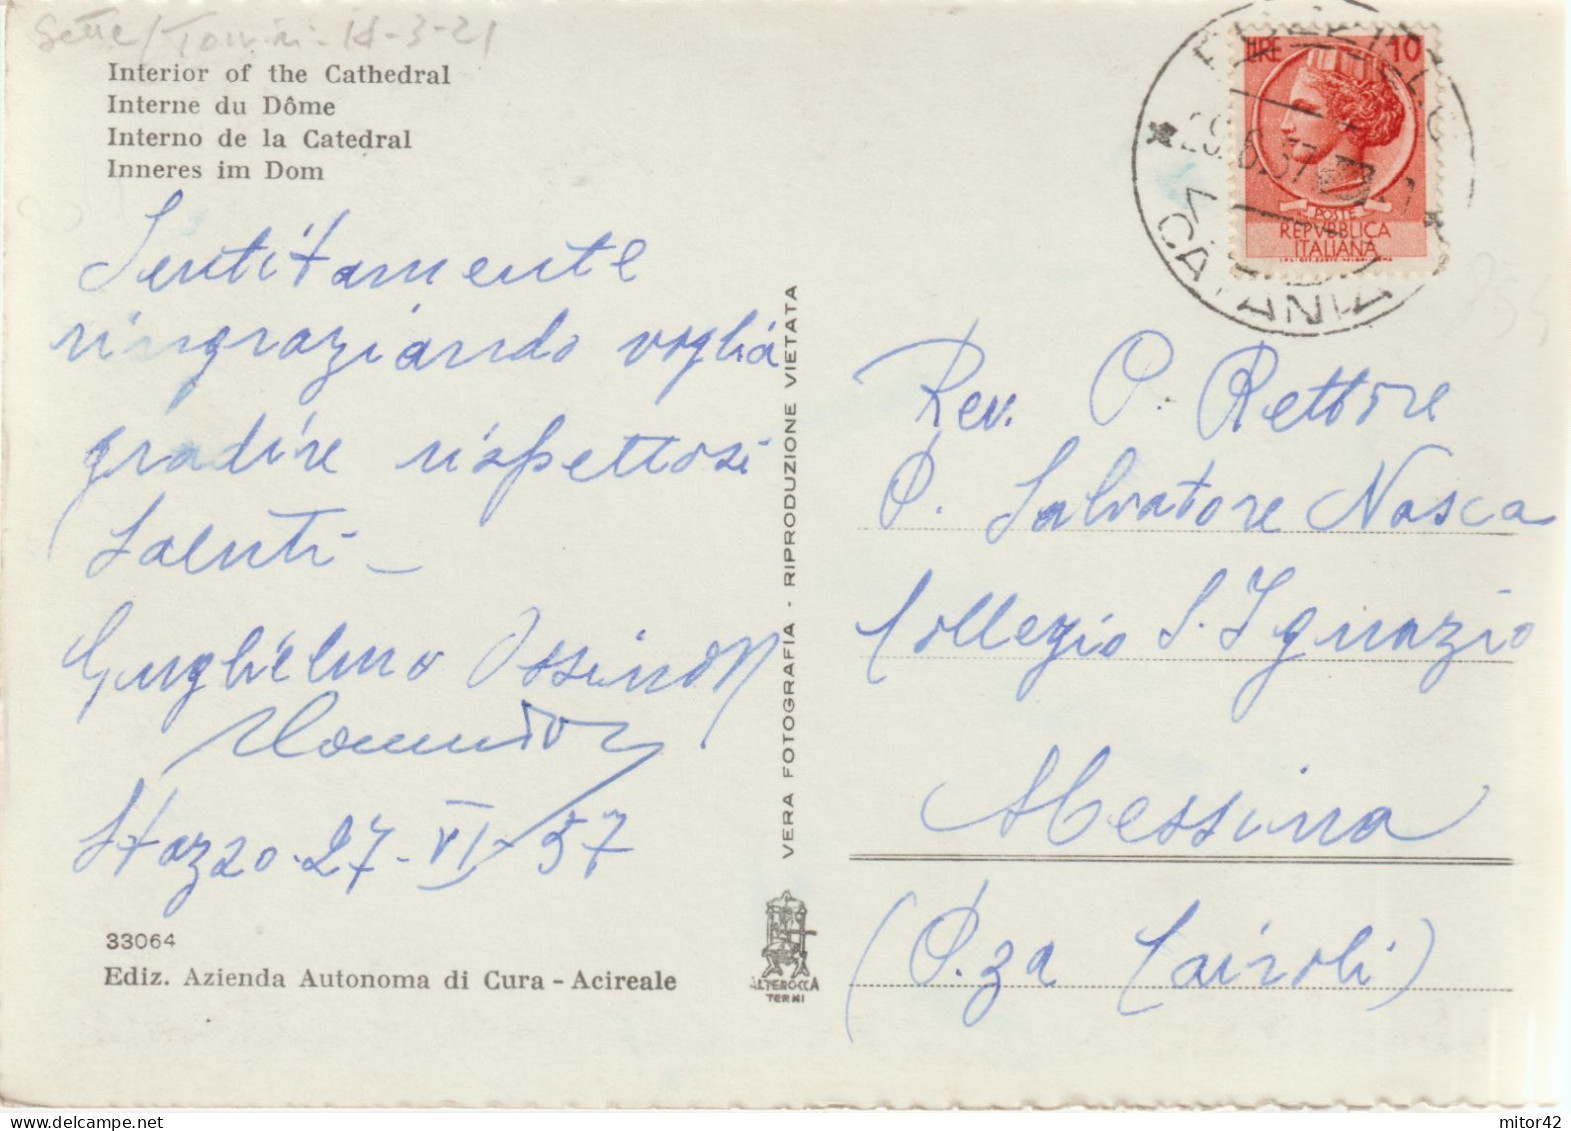 Interior of the Cathedral
Interne du Dôme
Interno de la Catedral
Inneres im Dom
Sentitamente
ringraziando voglia
gradire rispettosi
saluti -
Guglielmo
Stazzo - 27 - VI - 57
33064
Ediz. Azienda Autonoma di Cura - Acireale
VERA FOTOGRAFIA - RIPRODUZIONE VIETATA
ALTEROCCA
TERNI
LIRE 10
POSTE
REPVBBLICA
ITALIANA
CATANIA
Rev. P. Rettore
P. Salvatore Nasca
Collegio S. Ignazio
Messina
(P.za Cairoli)
mitor42